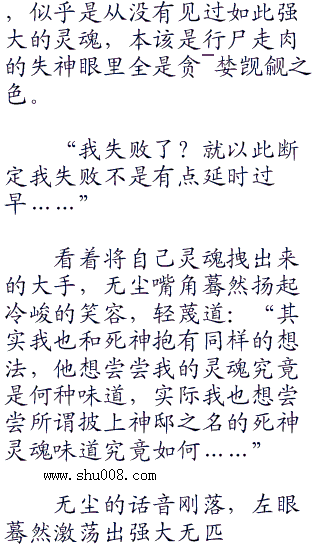 ，似乎是从没有见过如此强
大的灵魂，本该是行尸走肉
的失神眼里全是贪¯婪觊觎之
色。
“我失败了？就以此断
定我失败不是有点延时过
早……”
看着将自己灵魂拽出来
的大手，无尘嘴角蓦然扬起
冷峻的笑容，轻蔑道：“其
实我也和死神抱有同样的想
法，他想尝尝我的灵魂究竟
是何种味道，实际我也想尝
尝所谓披上神邸之名的死神
灵魂味道究竟如何……”
www.shu008.com
无尘的话音刚落，左眼
蓦然激荡出强大无匹